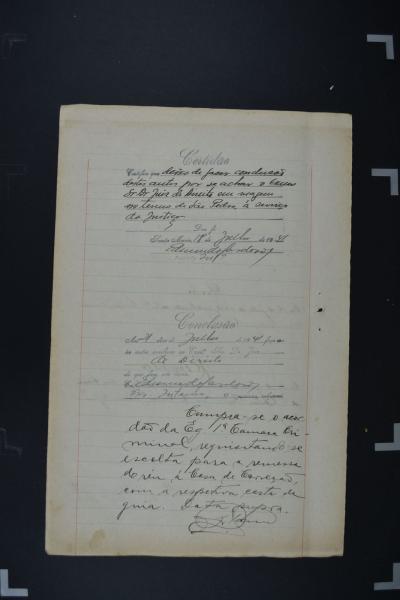 Certidão
Certifico que deixei de fazer conducção
destes autos por se achar o Exmo
Sr. Dr. Juiz de Direito em viagem
no termo de São Pedro á serviço
da Justiça.
Dou fé
Santa Maria, de Julho de 19
Conclusão
Aos dias de Julho de 19 faço
os autos conclusos ao Dr. Juiz
de Direito
do que faço este termo
Eu
Cumpra-se o acor-
dão da Eg. 1ª Camara Cri-
minal, requisitando-se
escolta para a remessa
do réu á Casa de Correção,
com a respectiva carta de
guia. Data supra.